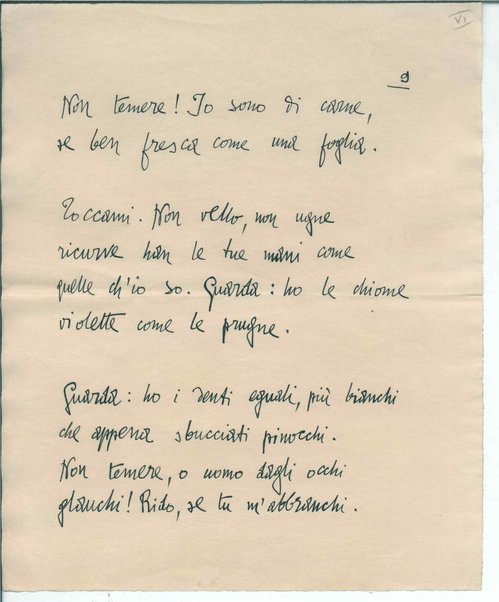 VI
9
Non temere! Io sono di carne,
se ben fresca come una foglia.
Toccami. Non vello, non ugne
ricurve han le tue mani come
quelle ch'io so. Guarda: ho le chiome
violette come le prugne.
Guarda: ho i denti eguali, più bianchi
che appena sbucciati pinocchi.
Non temere, o uomo dagli occhi
glauchi! Rido, se tu m'abbranchi.